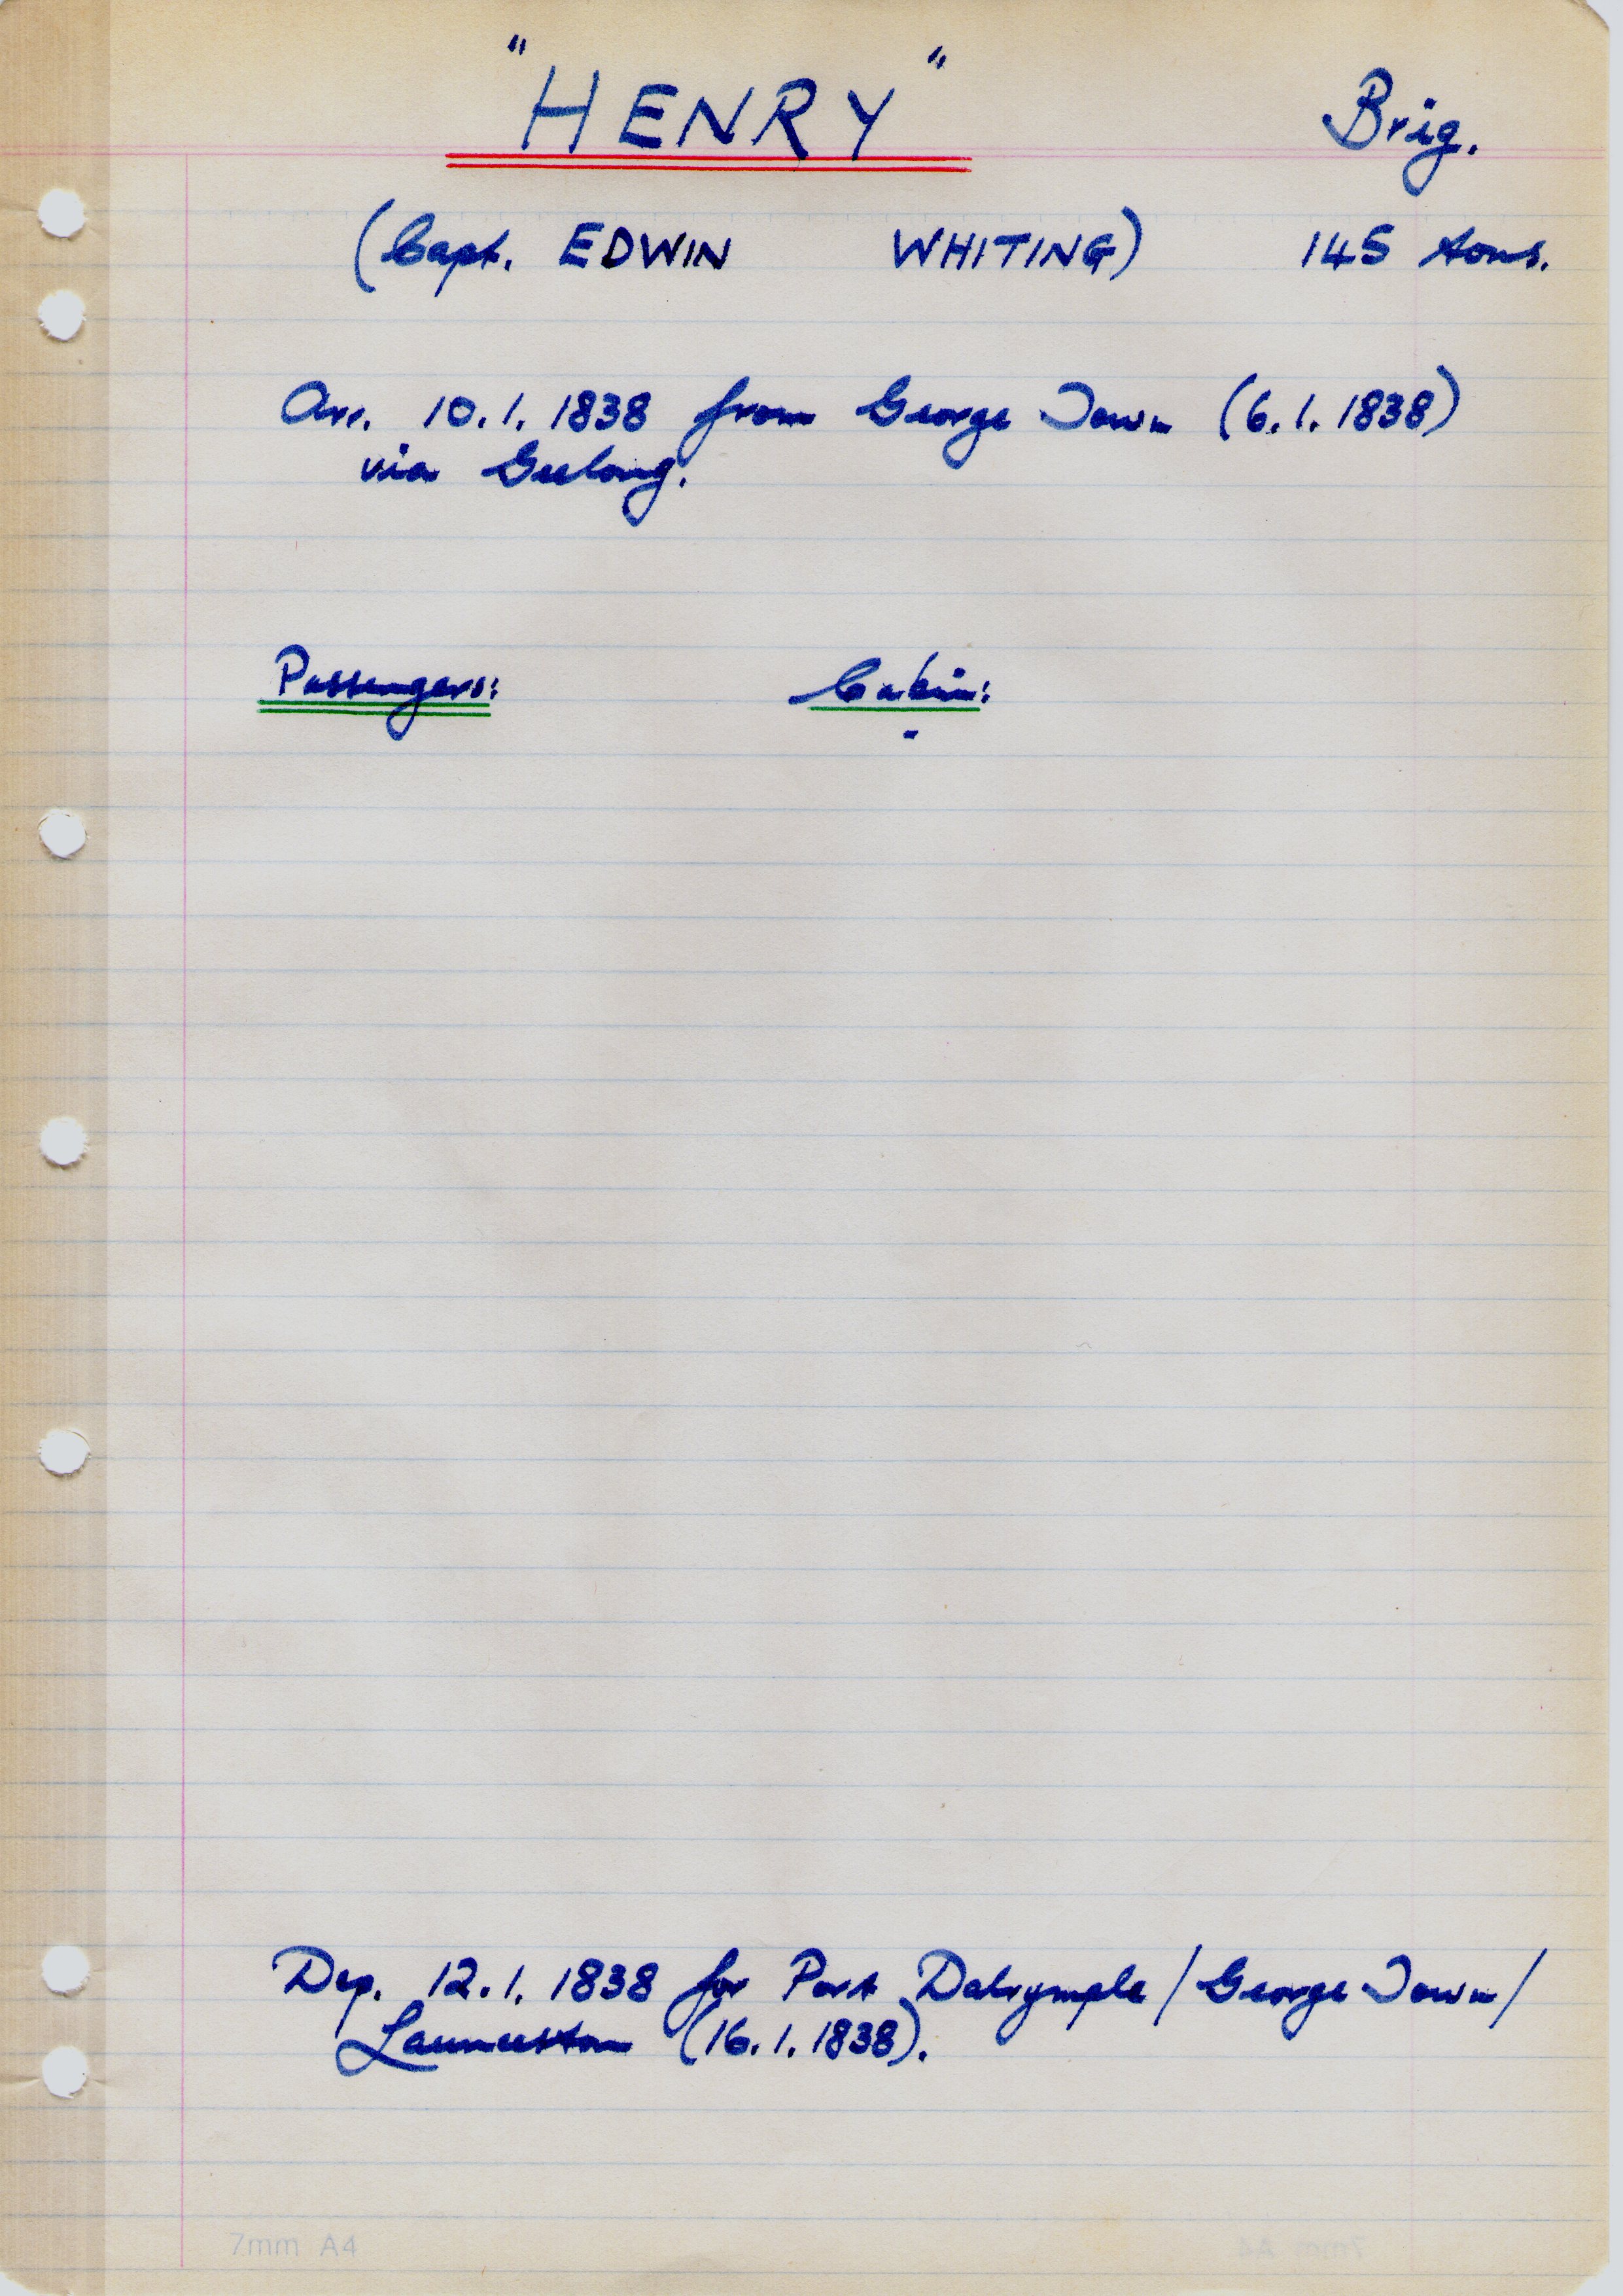 "HENRY" Brig.
(Capt. EDWIN WHITING) 145 tons.
Arr. 10.1.1838 from George Town (6.1.1838)
via Geelong.
Passengers: Cabin:
-
Dep. 12.1.1838 for Port Dalrymple/George Town/
Launceston (16.1.1838).
7mm A4